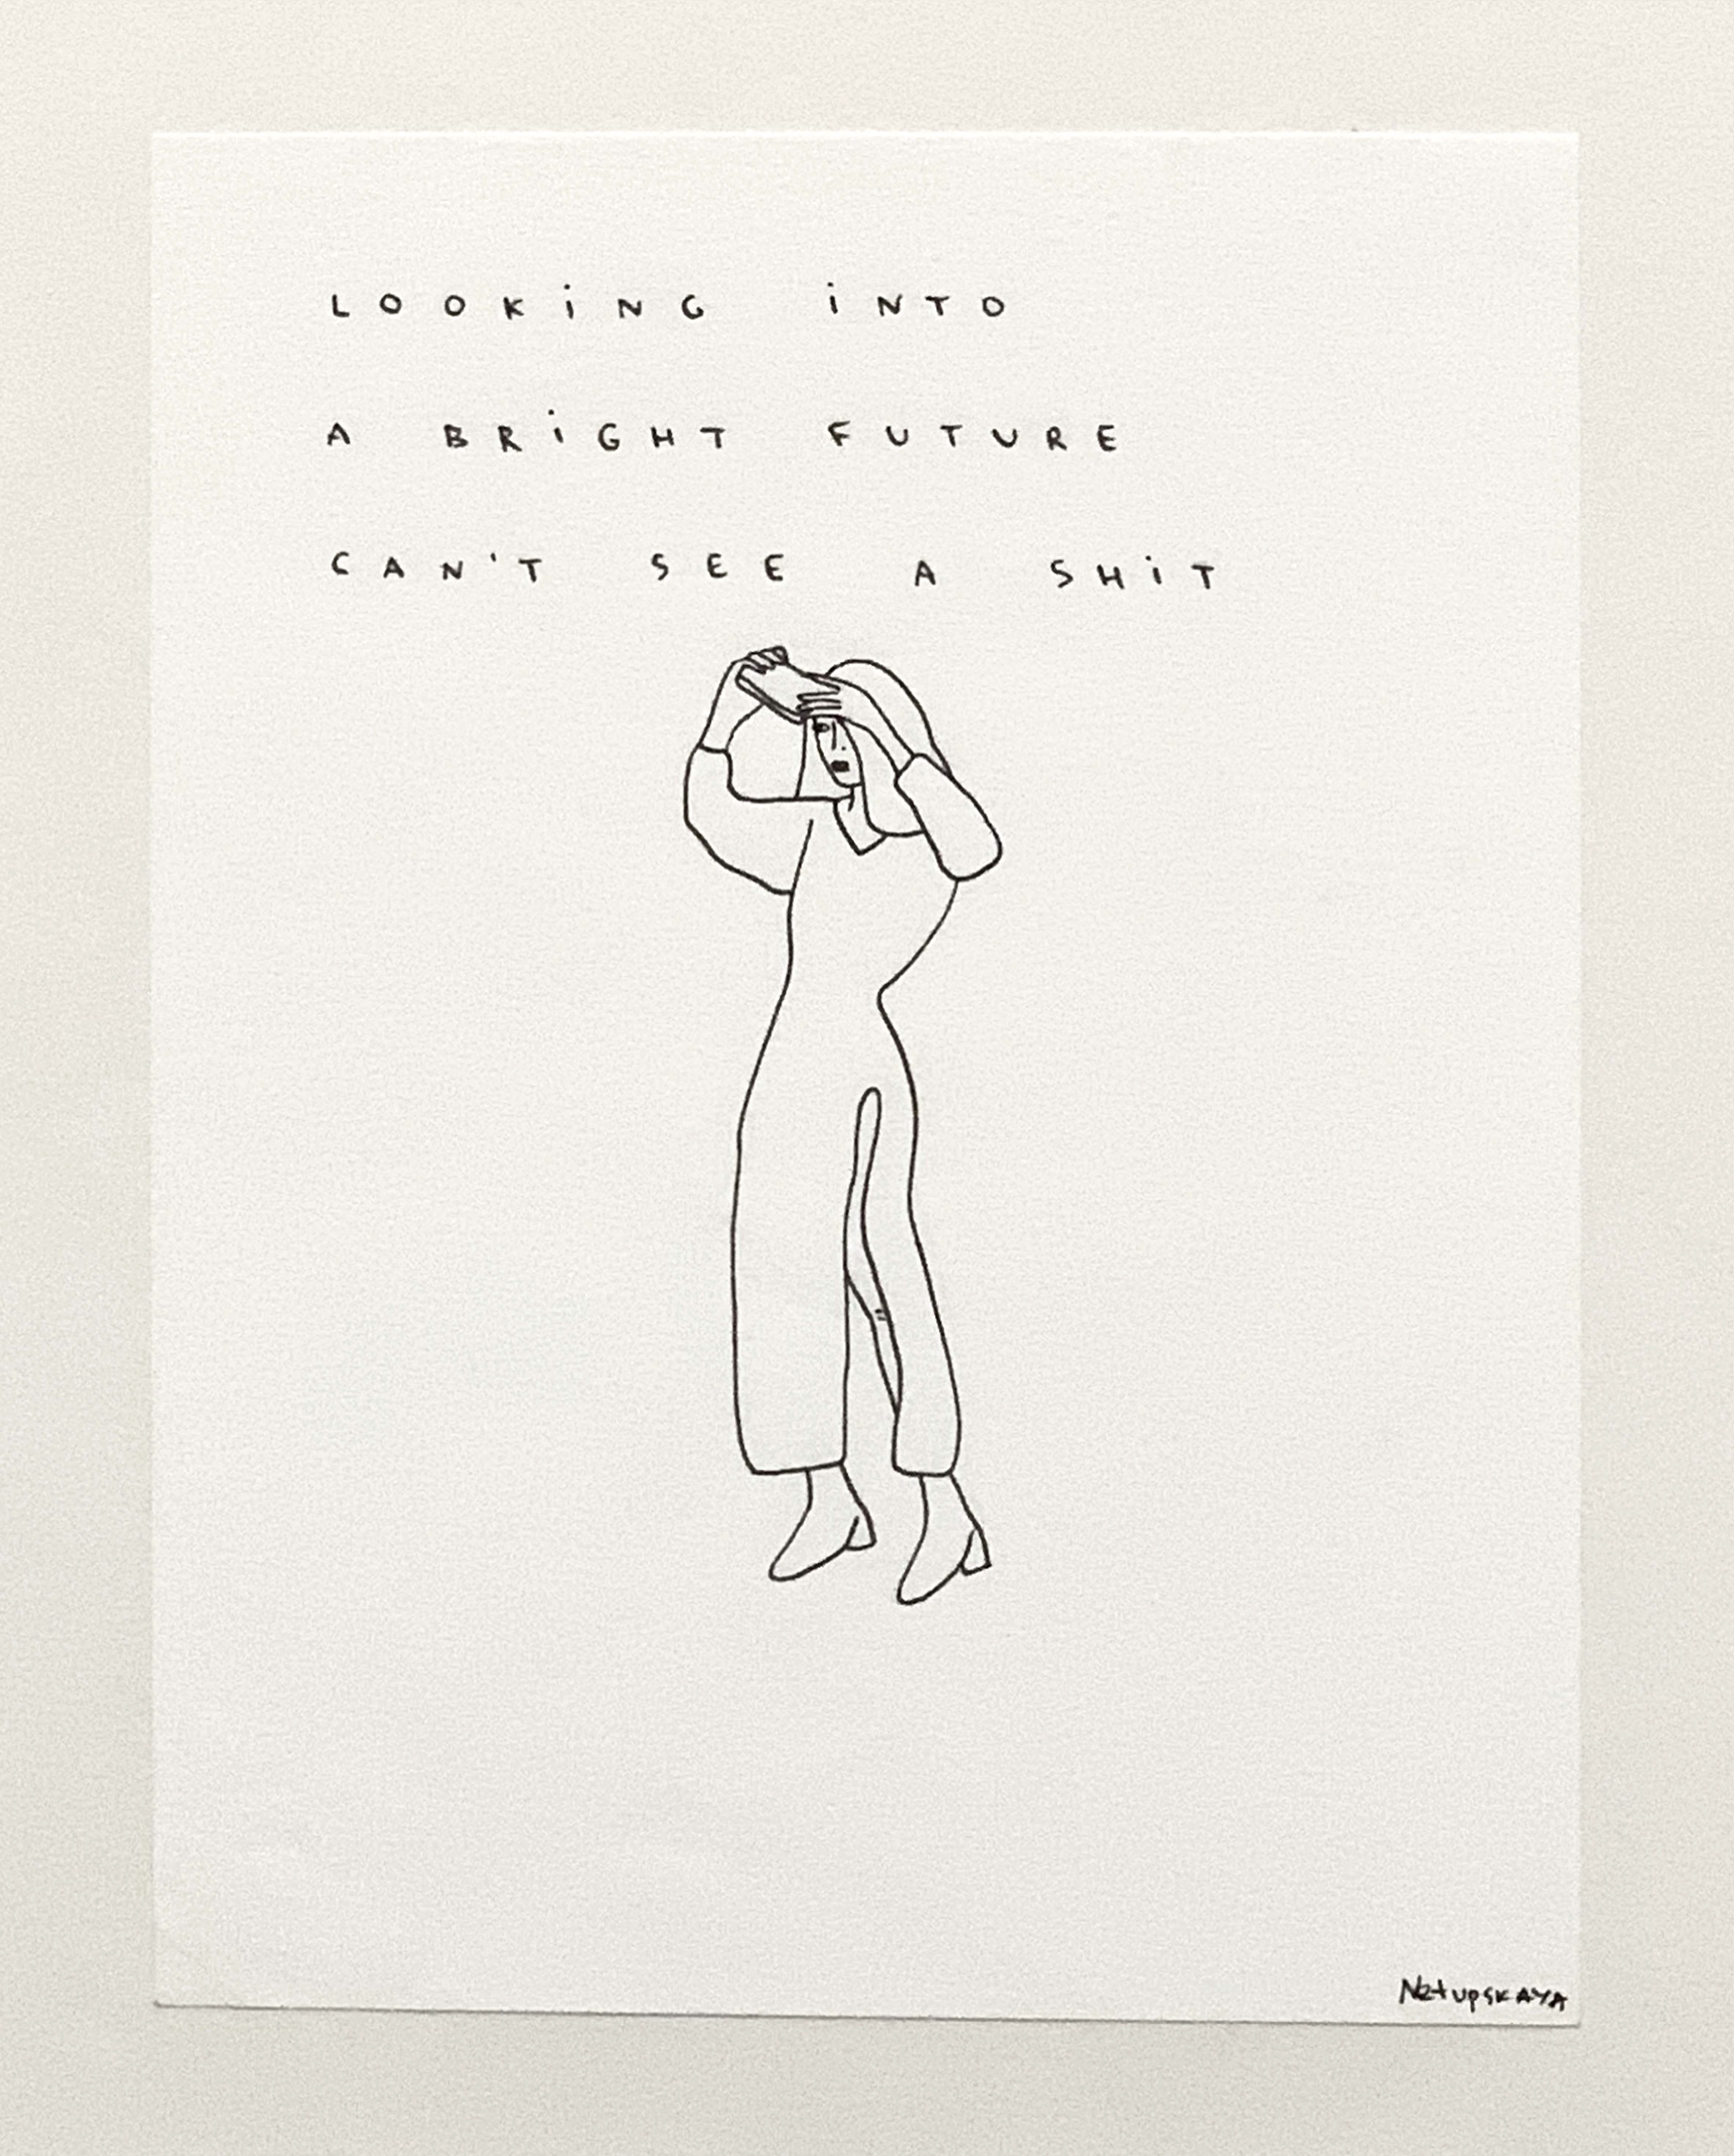 LOOKiNG iNTO
A BRiGHT FUTURE
CAN'T SEE A SHiT
Netupskaya